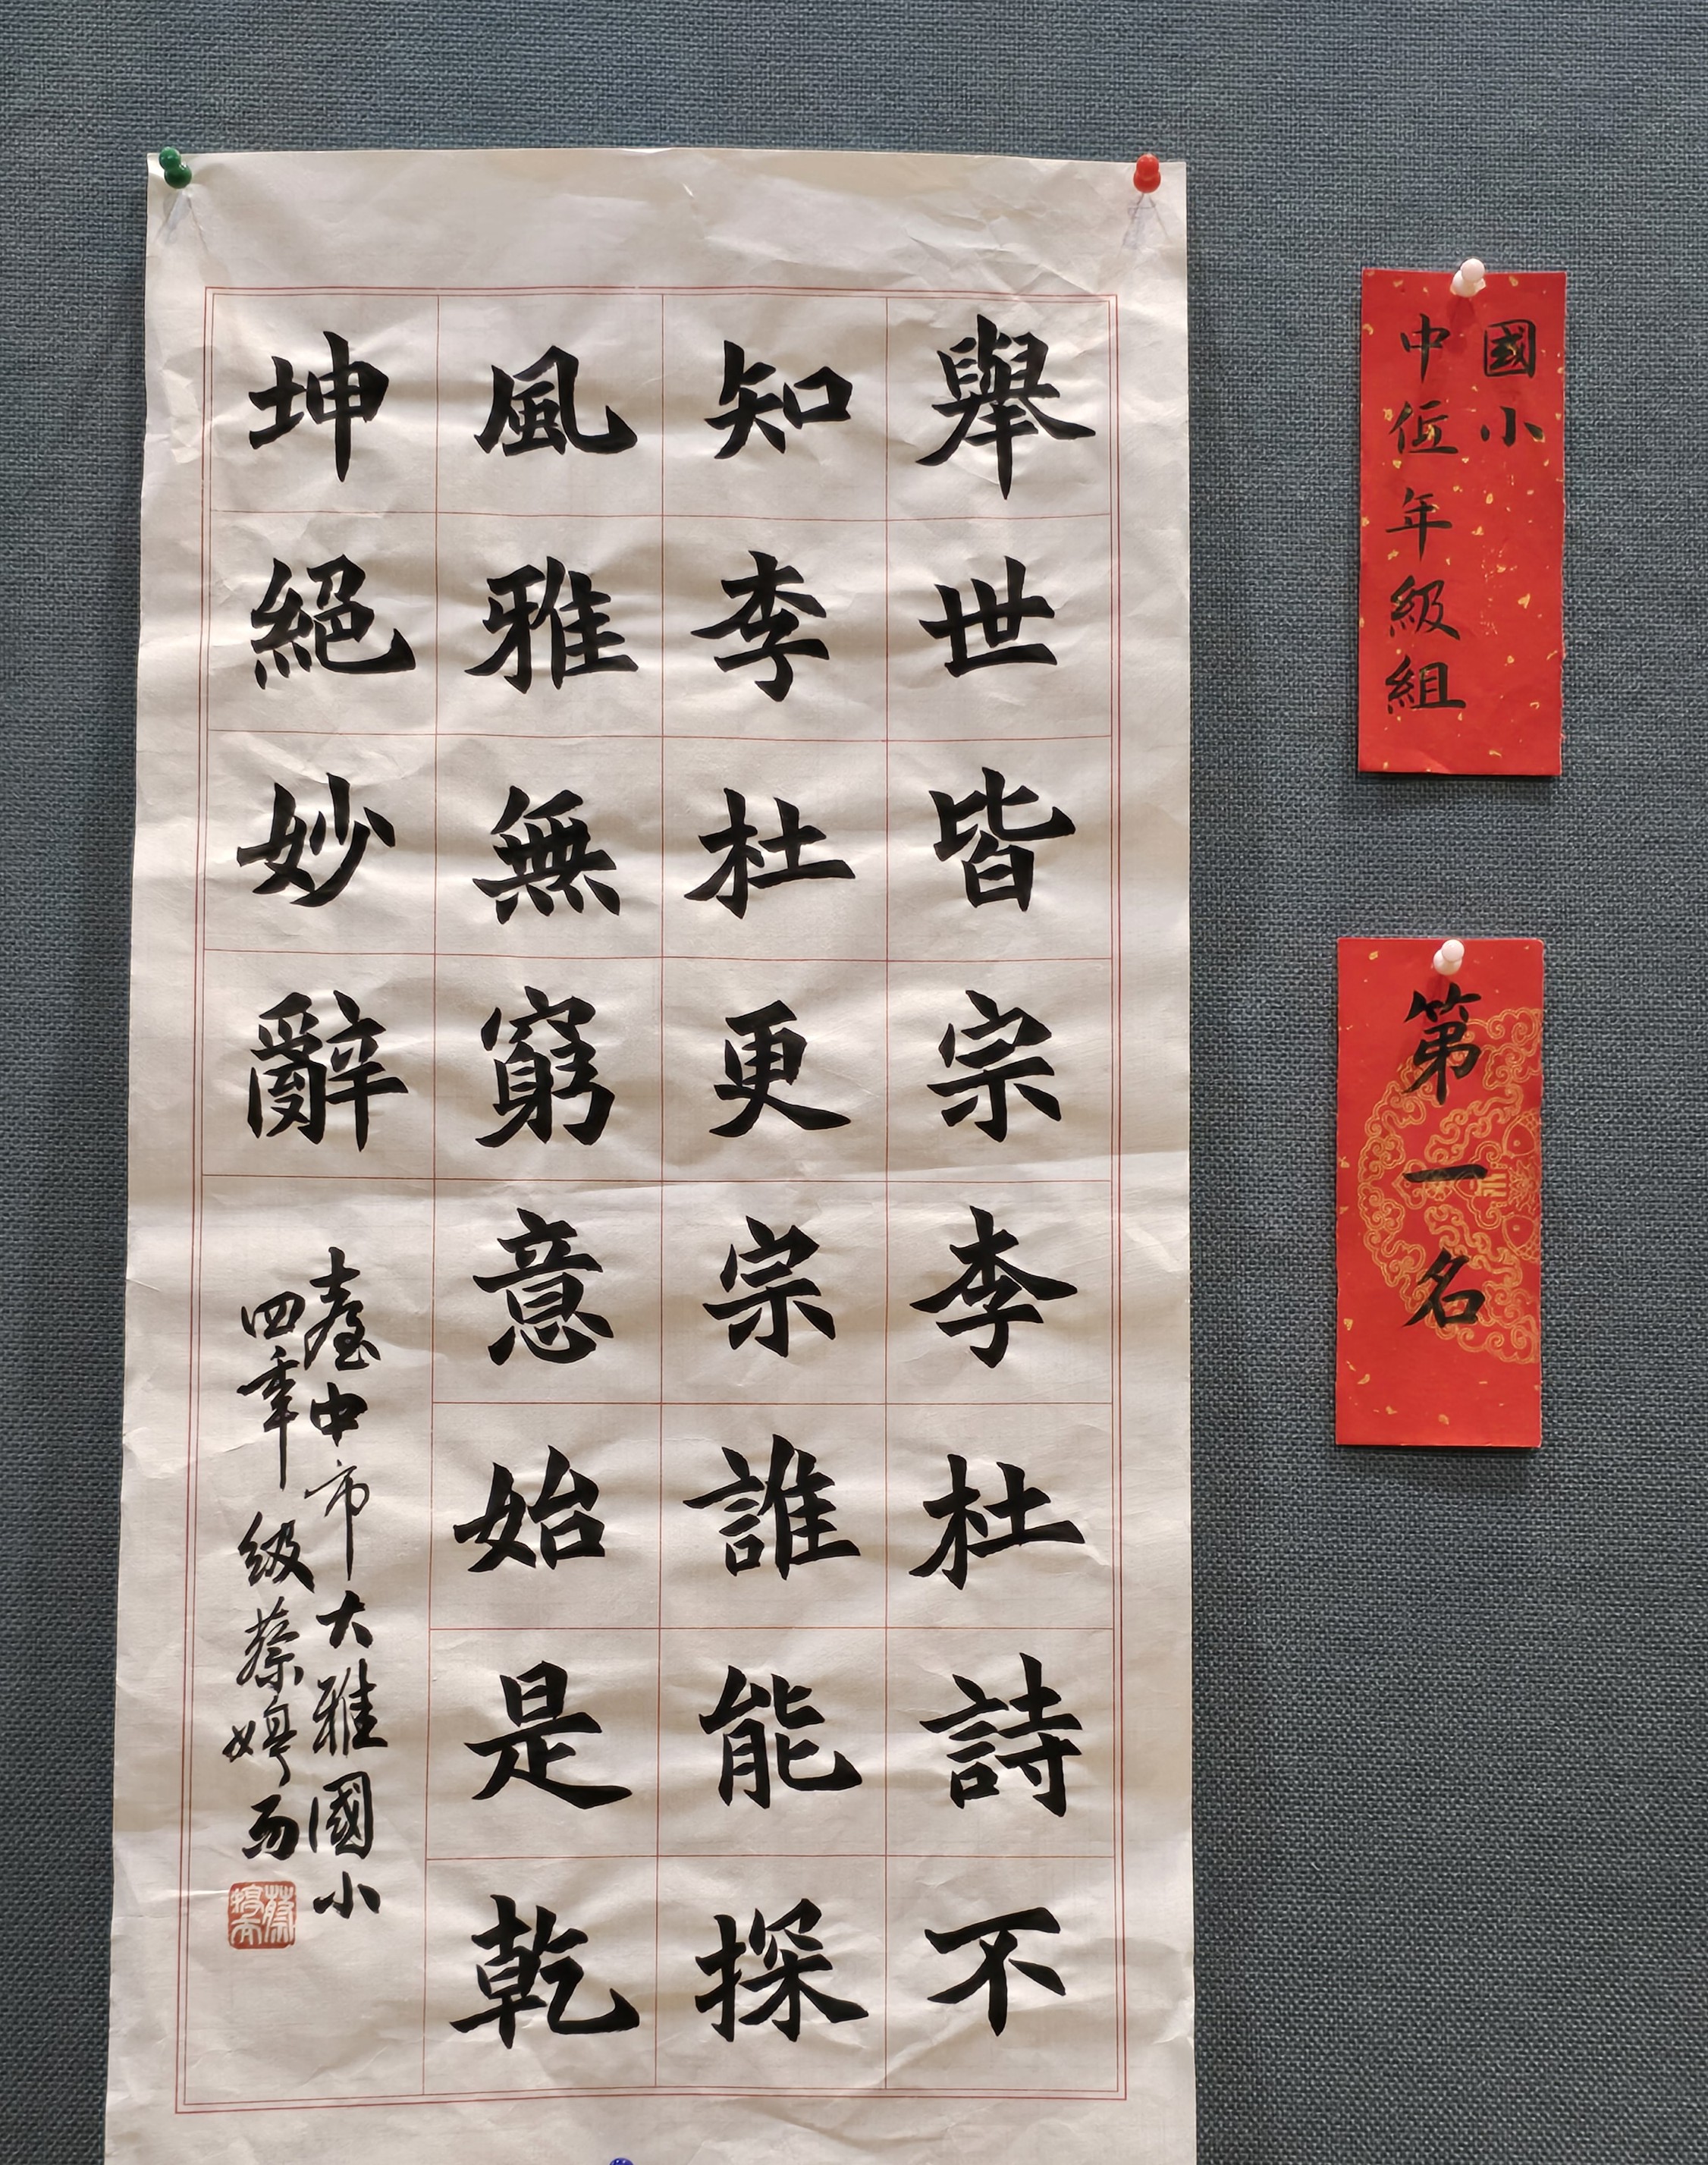 國小
中低年級組
第一名
舉世皆宗李杜詩不
知李杜更宗誰能探
風雅無窮意始是乾
坤絕妙辭
臺中市大雅國小
四年級蔡娉